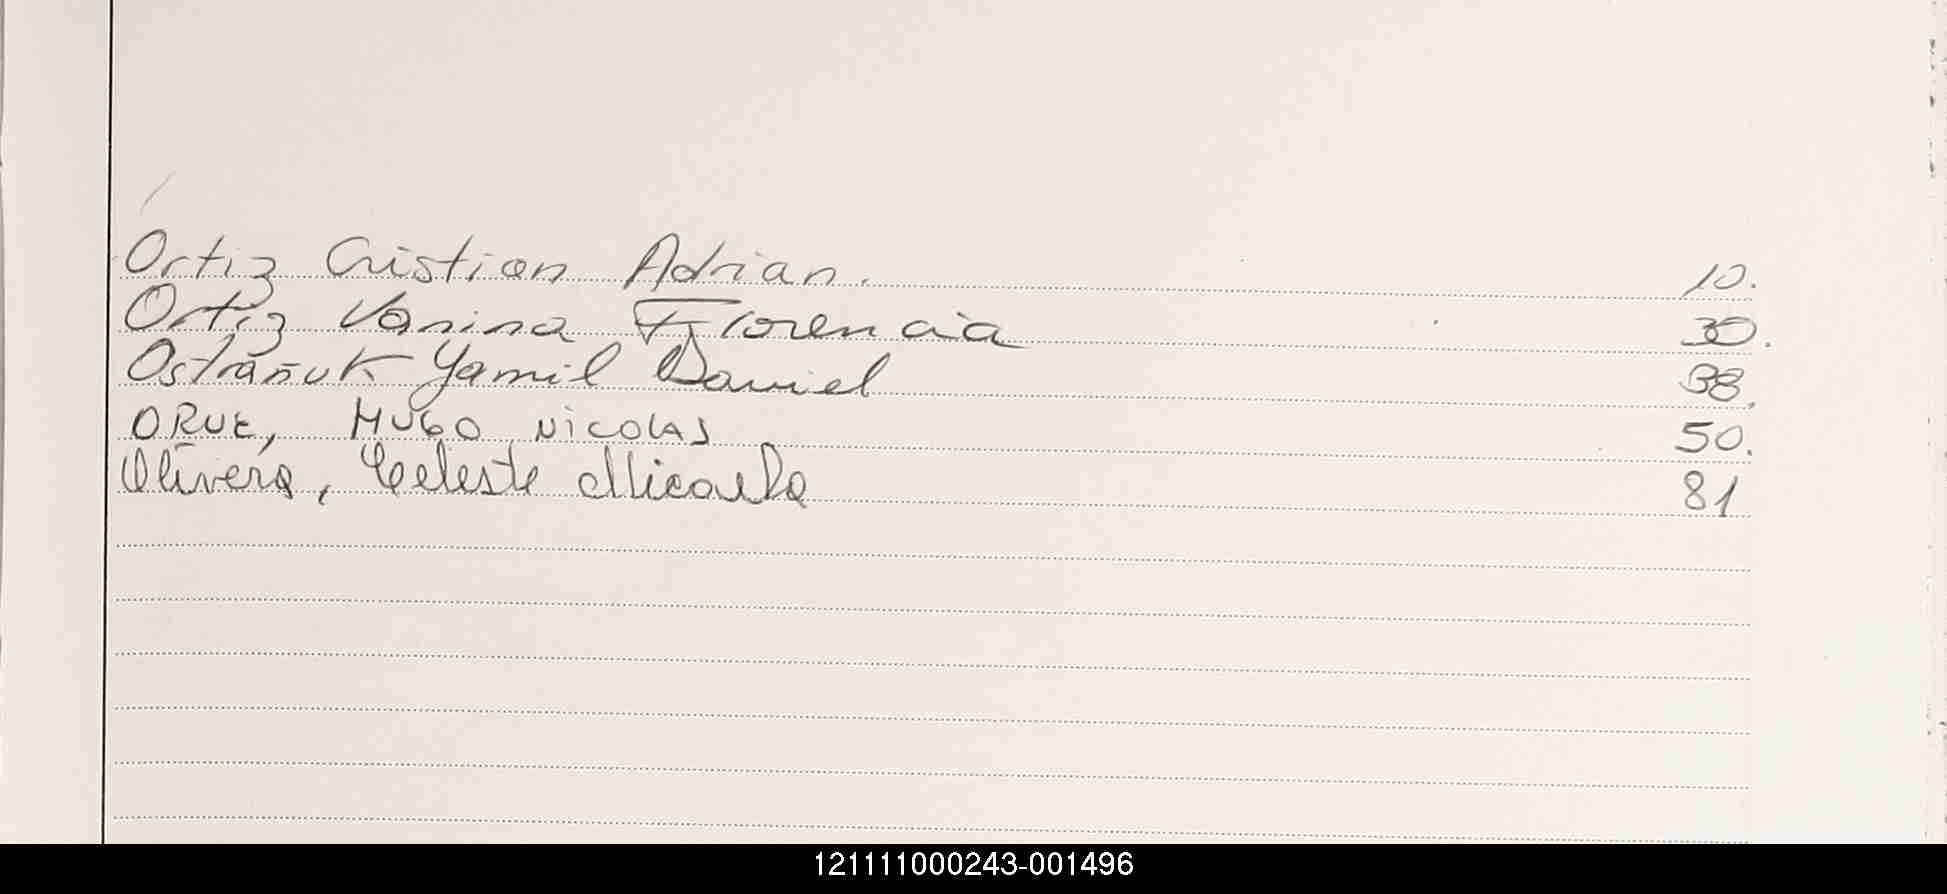 Ortiz Cristian Adrian. 10.
Ortiz Vanina Florencia 30.
Ostrañuk Yamil Daniel 38.
ORUE, HUGO NICOLAS 50.
Olivera, Celeste Micaela 81
121111000243-001496